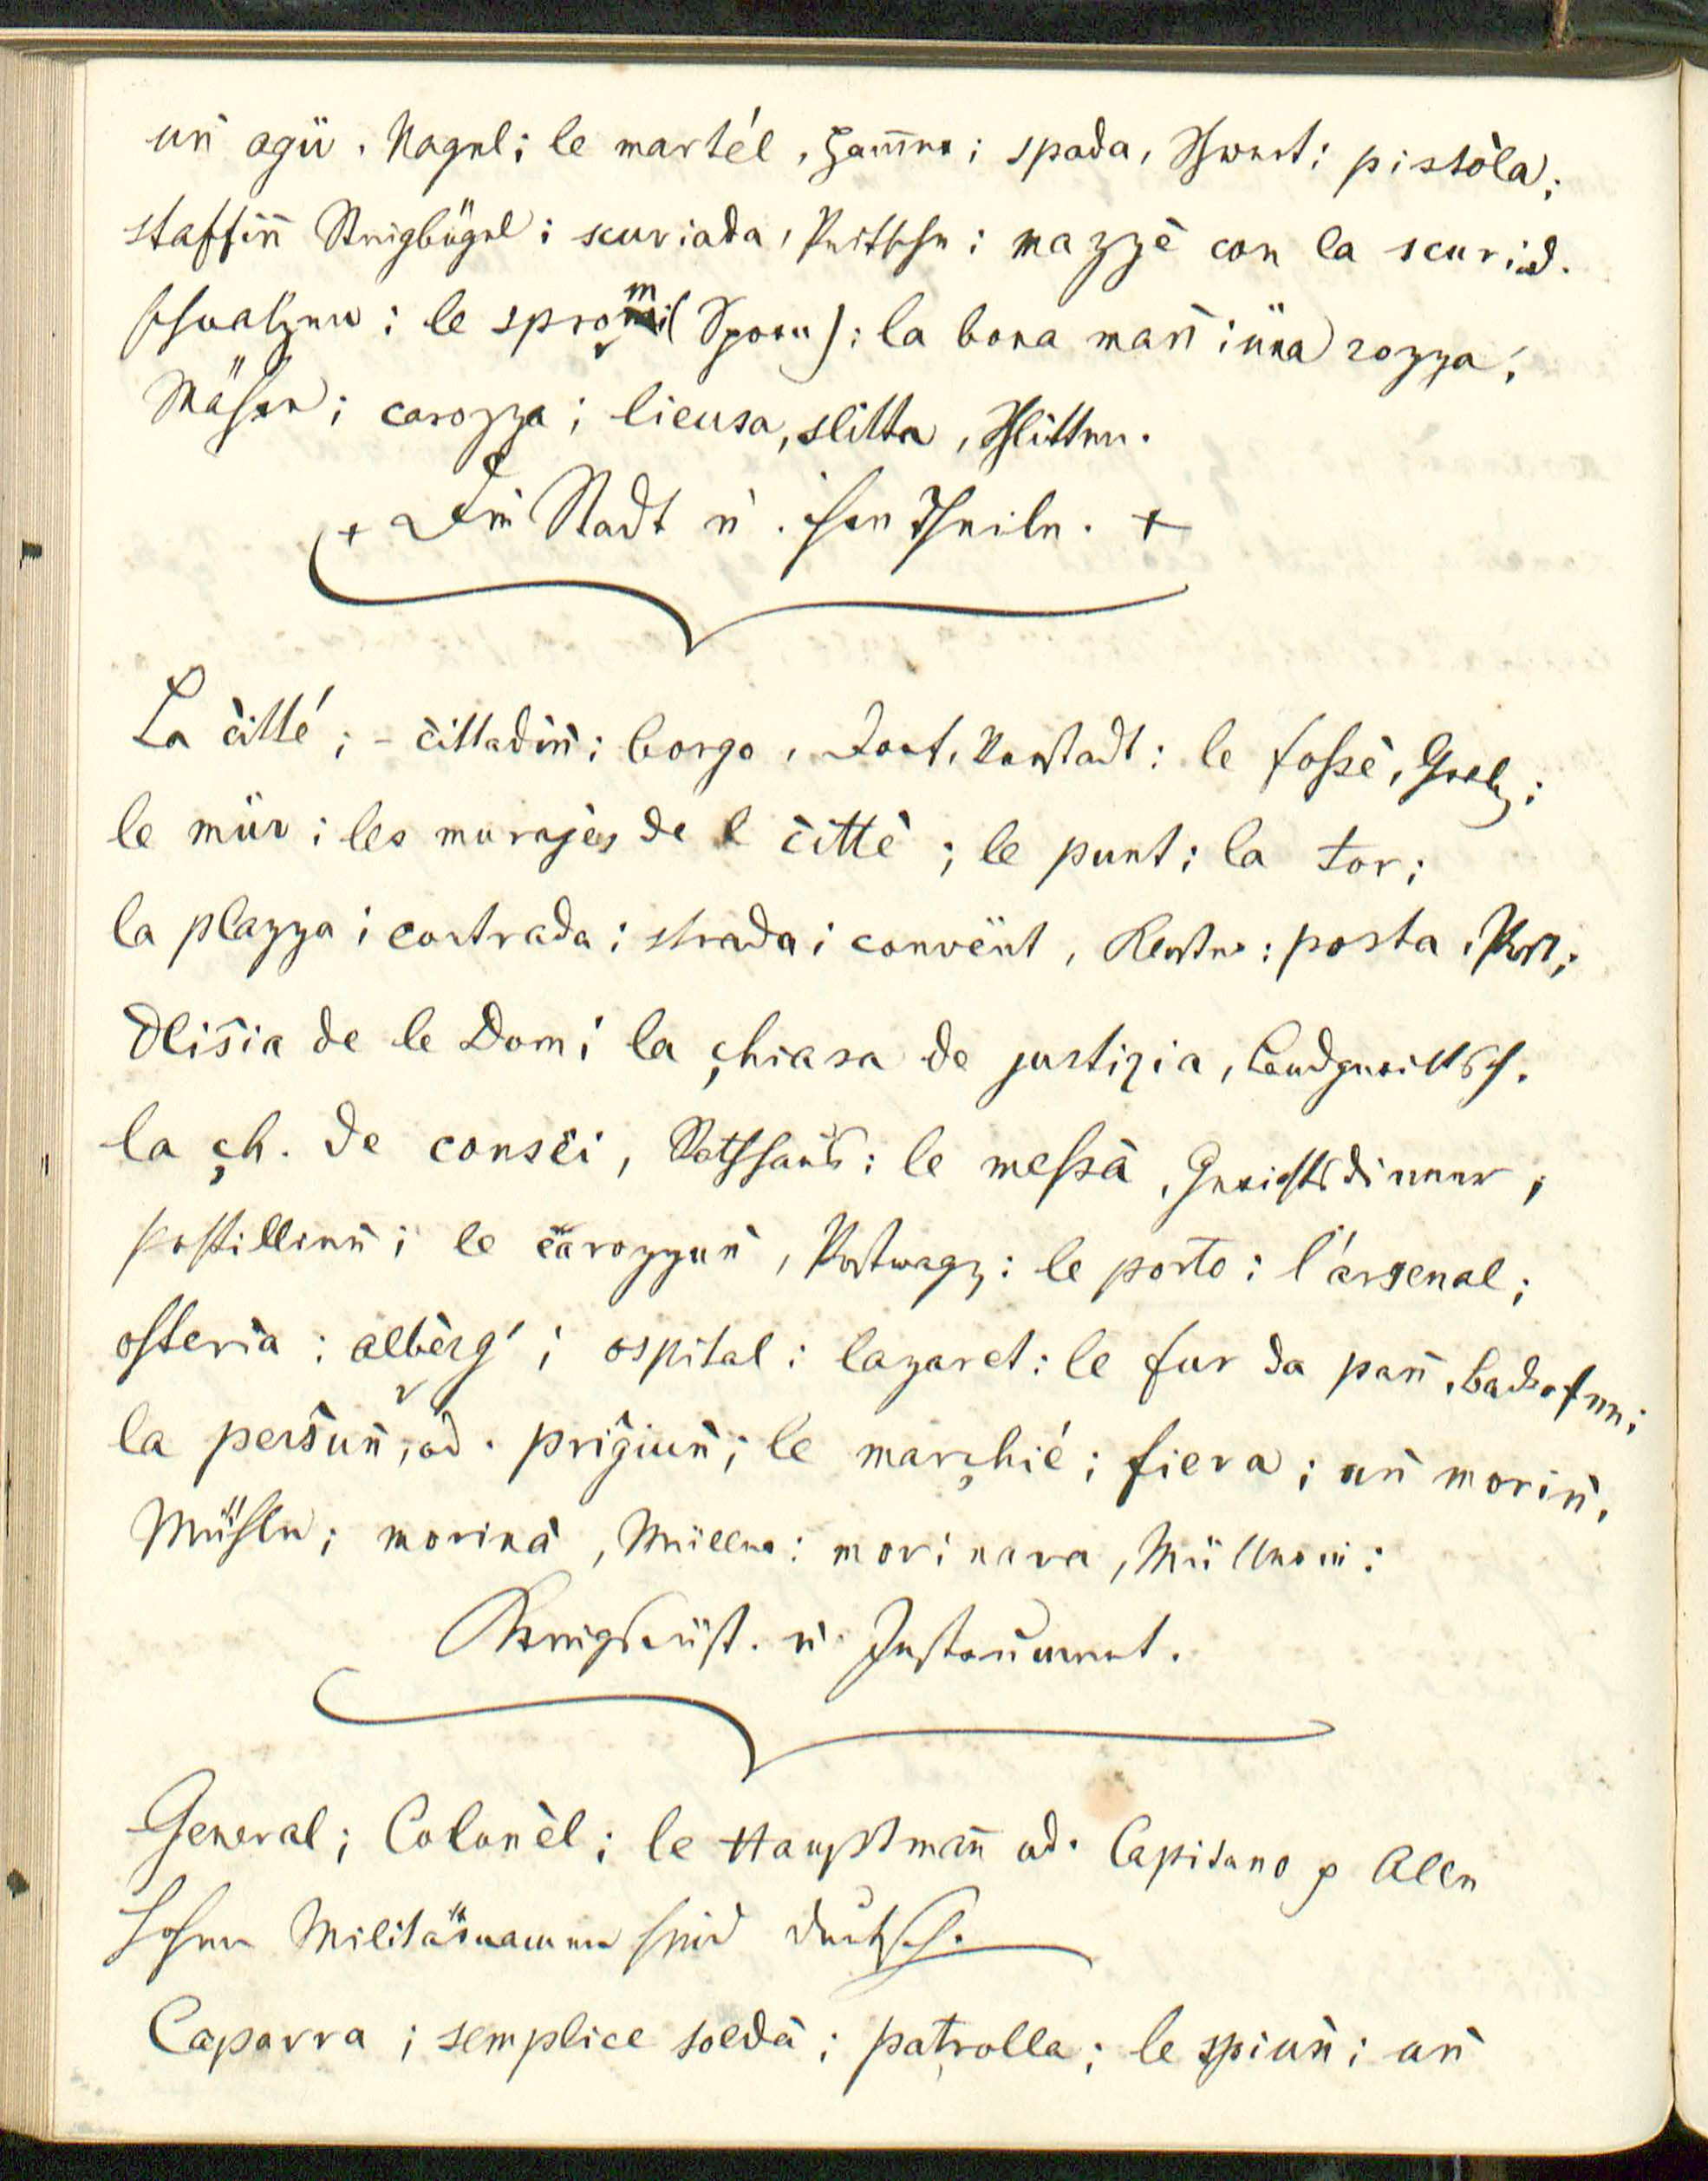 un̄ agü, Nagel; le martél, Ham̄er; spada, Schwert; pistòla;
staffin̄ Steigbügel; scuriada, Peitsche; mazzè con la scuriad.
schnalzen; le sprom (Sporn); la bona man̄; üna rozza,
Mähre; carozza; liensa, slitta, Schlitten.
+ Die Stadt u. ihre Theile. +
La c̀itté; – c̀ittadin̄; borgo, Dorf, Vorstadt; le foßè, Grab;
le mür; les murajès de l c̀ittè; le punt; la tor;
la plazza; contrada; strada; convënt, Kloster; posta, Post;
Dlis̀ia de le Dom; la çhiasa de justizia, Landgericht
la çh. de consëi, Rathhaus; le meßà, Gerichtsdiener;
postilliun̄; le c̄arozzun̄, Postwagen; le porto; l'arsenal;
osteria; albèrg'; ospital; lazaret; le fur da pan̄, Backofen;
la pers̀un̄, od. prig̀iun̄; le marçhié; fiera; un̄ morin̄,
Mühle; morinà, Müller; morinara, Müllerin;
Kriegsrüst. u. Instrument.
General; Colonèl; le Hauptman̄ od. Capitano p Alle
hohen Militärnamen sind deutsch.
Caparra; semplice soldà; patrolla; le spiun̄; un̄